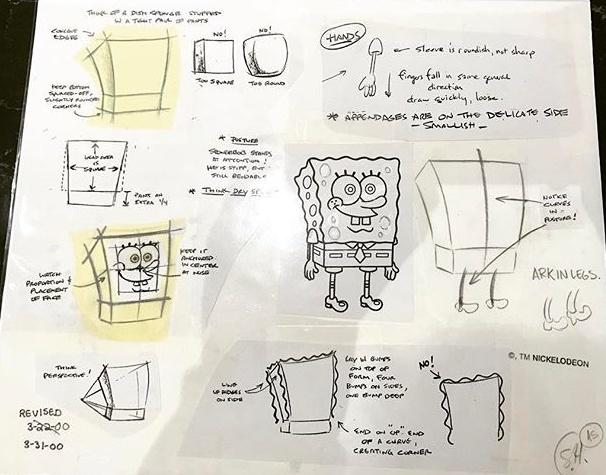 THINK OF A DISH SPONGE STUFFED
IN A TIGHT PAIR OF PANTS
CONCAVE
EDGES
KEEP BOTTOM
SQUARED-OFF,
SLIGHTLY ROUNDED
CORNERS
NO!
TOO SQUARE
NO!
TOO ROUND
HANDS
sleeve is roundish, not sharp
fingers fall in same general
direction
draw quickly, loose.
* APPENDAGES ARE ON THE DELICATE SIDE
- SMALLISH -
HEAD AREA
IS
SQUARE
PANTS AN
EXTRA 1/4
* POSTURE
SPONGEBOB STANDS
AT ATTENTION!
HE IS STIFF, BUT
STILL BENDABLE
* THINK DRY
NOTICE
CURVES
IN
POSTURE!
ARK IN LEGS.
WATCH
PROPORTION &
PLACEMENT
OF FACE
KEEP IT
ANCHORED
IN CENTER
AT NOSE
THINK
PERSPECTIVE!
LINE
UP RIDGES
ON SIDE
LAY IN BUMPS
ON TOP OF
FORM, FOUR
BUMPS ON SIDES,
ONE BUMP DEEP
END ON "UP" END
OF A CURVE,
CREATING CORNER
NO!
©, TM NICKELODEON
REVISED
3-22-00
3-31-00
S.H.